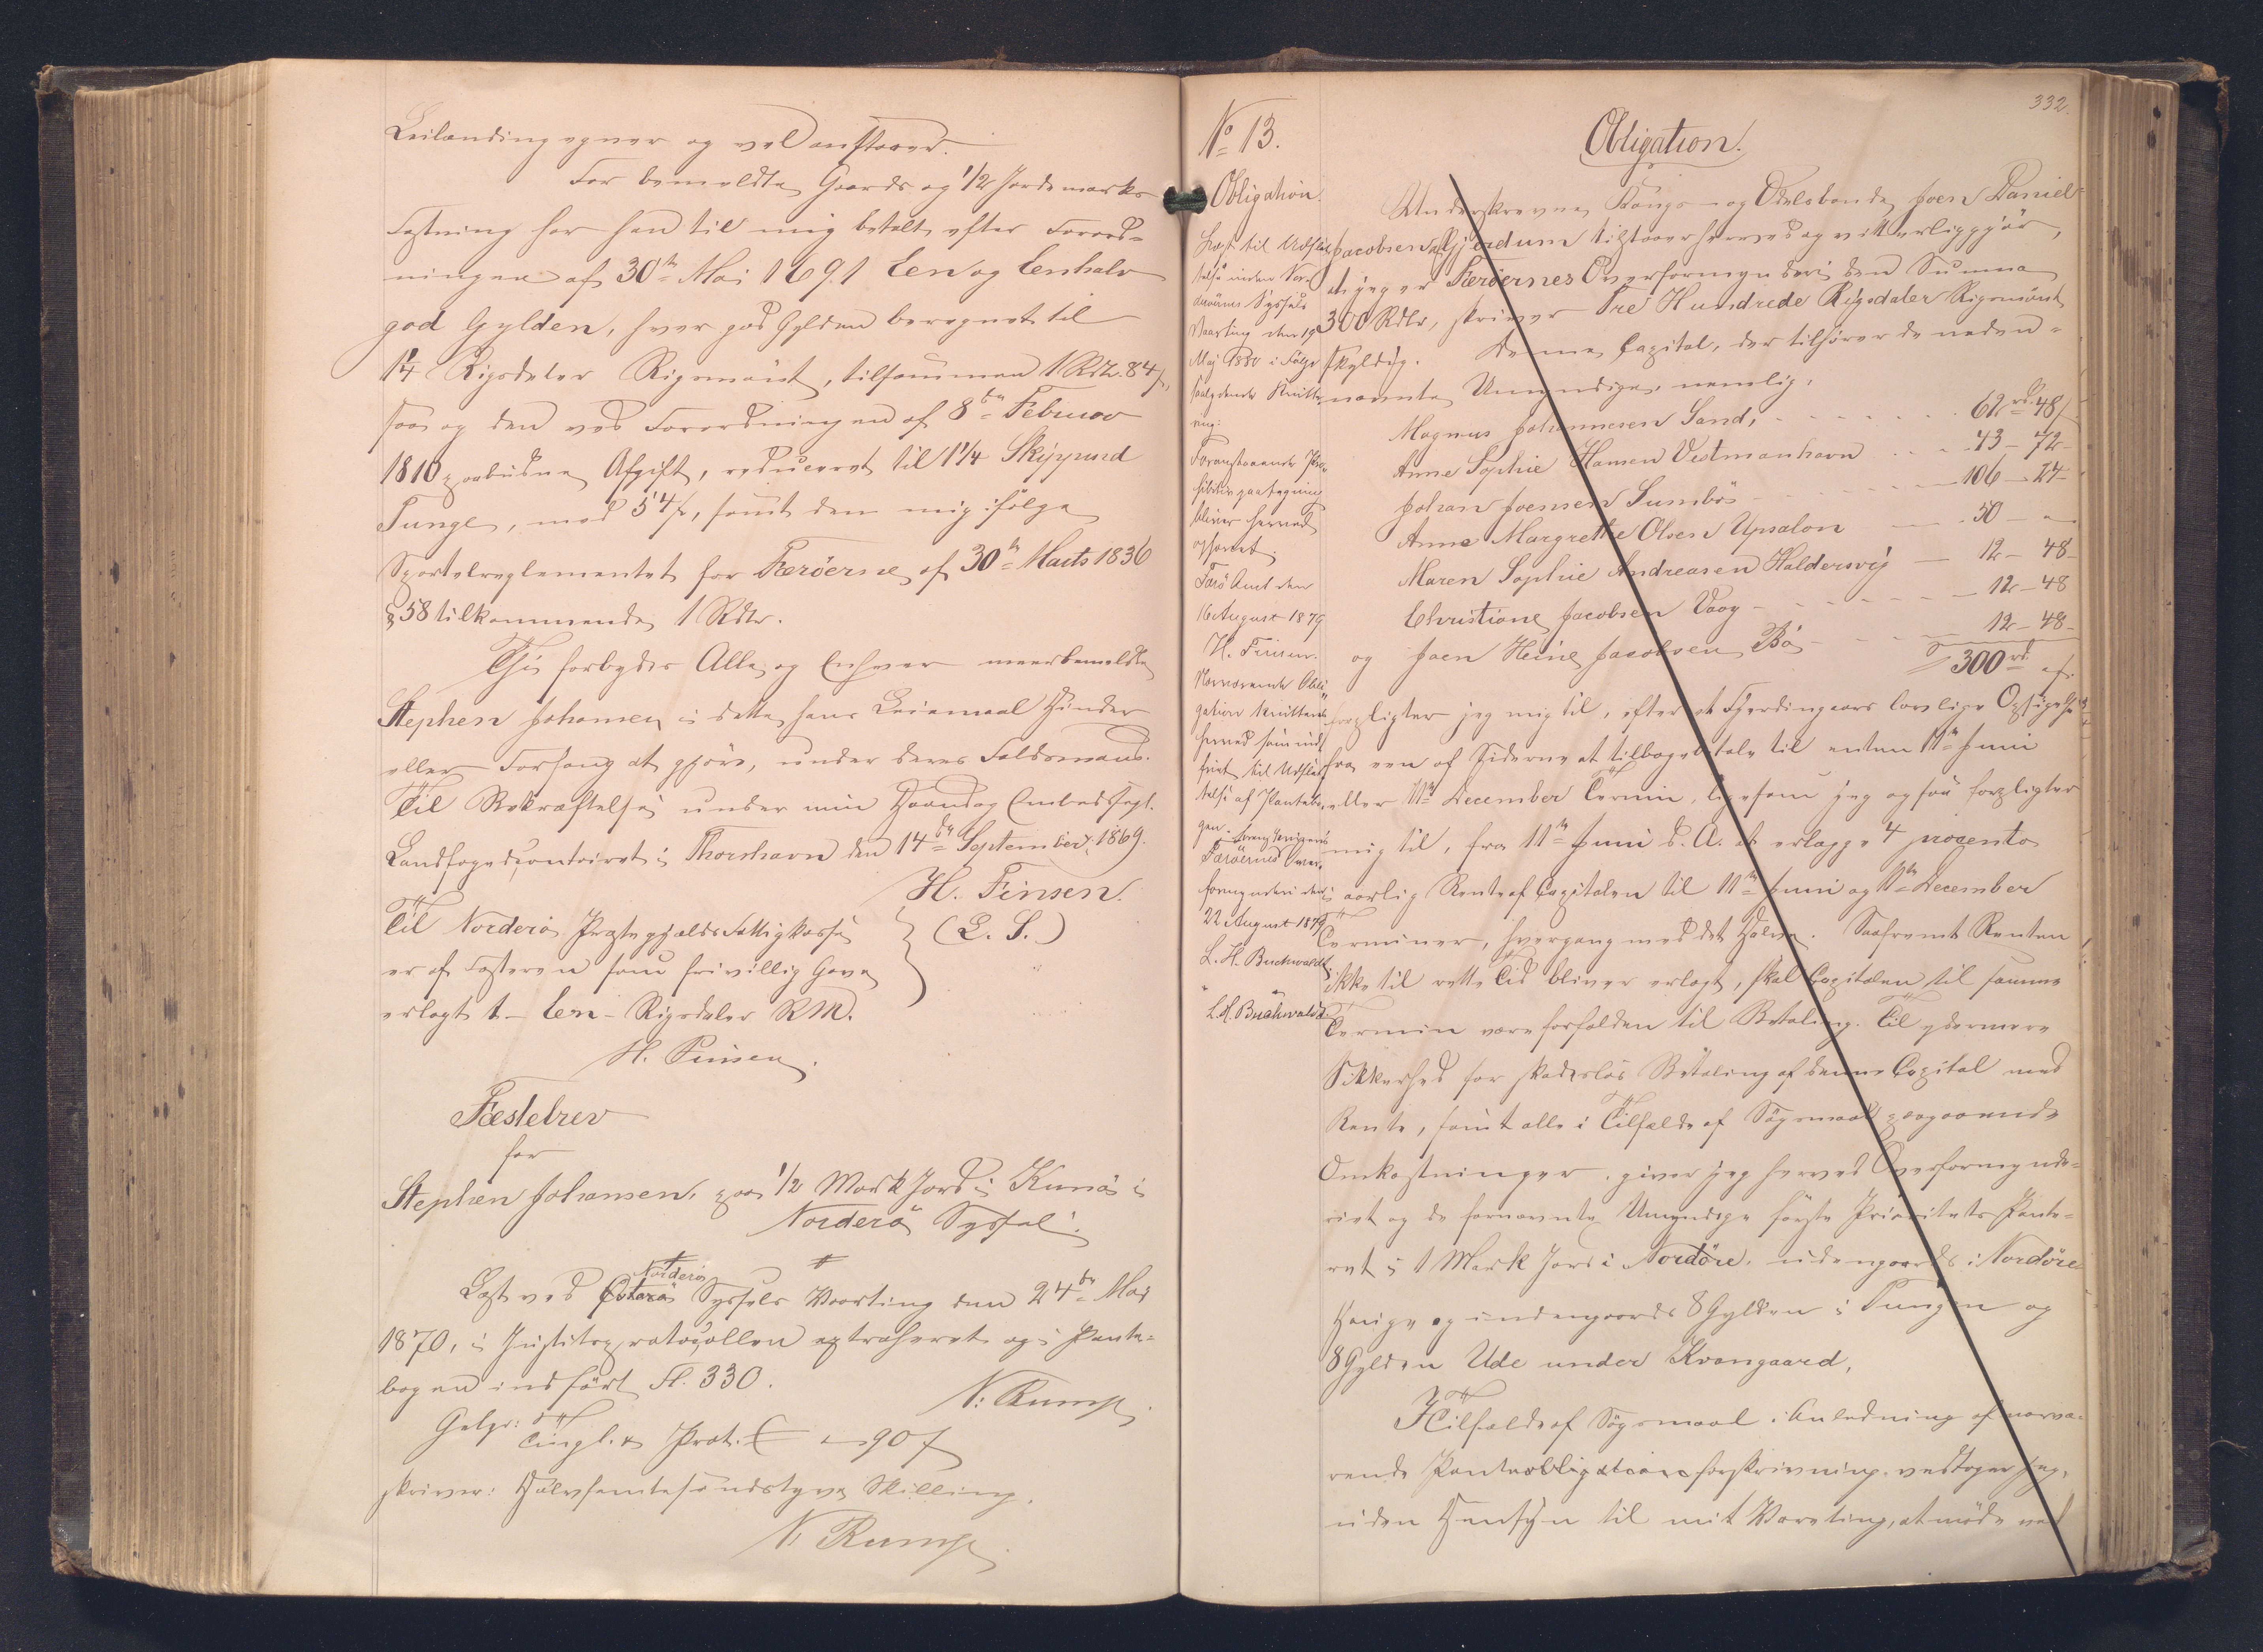 Leilændingegner og vel anstaaer.
For bemeldte Gaards og 1/2 Jordemarks
Fæstning har han til mig betalt efter Forord-
ningen af 30te Mai 1691 Een og Een halv
god Gylden, hver god Gylden beregnet til
1 1/4 Rigsdaler Rigsmønt, tilsammen 1 Rdl. 84 s,
saa og den ved Forordningen af 8de Februar
1810 paabudne Afgift, reduceret til 1 1/4 Skippund
Tunge, med 54 s, samt den mig ifølge
Sportelreglementet for Færöerne af 30te Marts 1836
§ 58 tilkommende 1 Rdlr.
Thi forbydes Alle og Enhver meerbemeldte
Stephen Johansen i dette hans Leiemaal Hinder
eller Forfang at gjøre, under deres Faldsmaal.
Til Bekræftelse under min Haand og Embedssegl.
Landfogedcontoiret i Thorshavn den 14de September 1869.
H. Finsen.
(L. S.)
Til Norderø Præstegjælds Fattigkasse
er af Fæsteren som frivillig Gave
erlagt 1 - Een - Rigsdaler RM.
H. Finsen.
Fæstebrev
for
Stephen Johansen, paa 1/2 Mark Jord i Kunø i
Norderø Syssel.
Norderø
Læst ved Österø Syssels Vaarting den 24de Mai
1870, i Justitsprotocollen extraheret og i Pante-
bogen indført Fl. 330.
N: Rump.
Gebyr:
Tingl. & Prot. 90 s
skriver: Halvfemtesindstyve Skilling.
N. Rump.
332.
No 13.
Obligation.
Læst til Udslet-
telse inden
Syssels
Vaarting den 19
Maj 1880 i Følge
saalydende Kvitte-
ring:
Foranstaaende Pro-
hibitivpaategning
bliver herved
ophævet.
Færø Amt den
16 August 1879
H. Finsen.
Nærværende Obli-
gation kvitteres
herved som ind-
friet til Udslet-
telse af Pantebo-
gen.
Færøernes Over-
formynderi den
22 August 1879
L. H. Buchwaldt
L. H. Buchwaldt
Obligation.
Underskrevne Kongs- og Odelsbonde Joen Daniel
Jacobsen af Gjerdum tilstaaer herved og vitterliggjør,
at jeg er Færöernes Overformynderi den Summa
300 Rdlr, skriver Tre Hundrede Rigsdaler Rigsmønt
skyldig. Denne Capital, der tilhører de neden-
nævnte Umyndige, nemlig:
Magnus Johannesen Sand, 62 rd 48 s
Anne Sophie Hansen Vestmanhavn 43 - 72 -
Johan Joensen Sumbø 106 - 24 -
Anne Margrethe Olsen Upsalon 50 - „ -
Maren Sophie Andreasen Haldersvig 12 - 48 -
Christiane Jacobsen Vaag 12 - 48
og Joen Heine Jacobsen Bø 12 - 48 -
300 rd
forpligter jeg mig til, efter et Fjerdingaars lovlige Opsigelse
fra een af Siderne at tilbagebetale til enten 11te Juni
eller 11te December Termin, ligesom jeg ogsaa forpligter
mig til, fra 11te Juni d. A. at erlægge 4 procento
i aarlig Rente af Capitalen til 11te Juni og 11te December
Terminer, hvergang med det Halve. Saafremt Renten
ikke til rette Tid bliver erlagt, skal Capitalen til samme
Termin være forfalden til Betaling. Til ydermere
Sikkerhed for skadesløs Betaling af denne Capital med
Rente, samt alle i Tilfælde af Søgsmaal paagaaende
Omkostninger, giver jeg herved Overformynde-
riet og de fornævnte Umyndige første Prioritets Pante-
ret i 1 Mark Jord i Nordöre, udengaards i Nordöre
Hauge og indengaards 8 Gylden i Tungen og
8 Gylden Ude under Kvangaard,
I Tilfælde af Søgsmaal i Anledning af nærvæ-
rende Panteobligations forskrivning, vedtager jeg,
uden Hensyn til mit Værneting, at møde ved